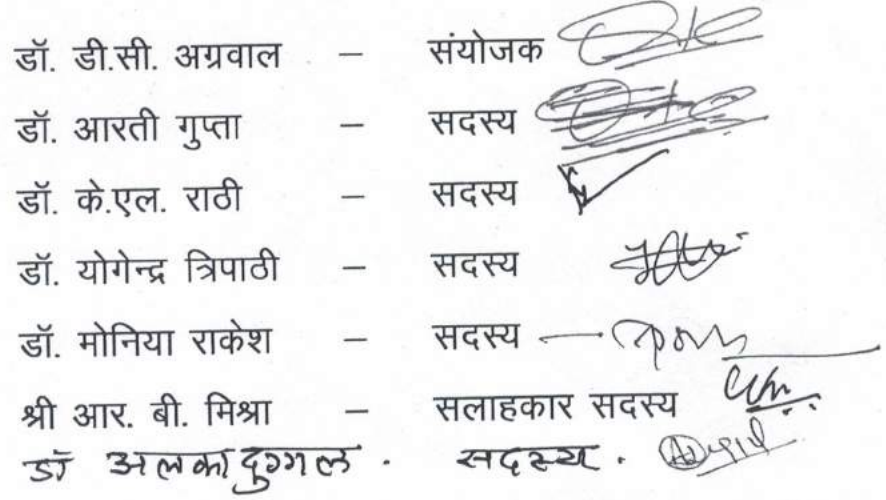 डॉ. डी.सी. अग्रवाल – संयोजक
डॉ. आरती गुप्ता – सदस्य
डॉ. के.एल. राठी – सदस्य
डॉ. योगेन्द्र त्रिपाठी – सदस्य
डॉ. मोनिया राकेश – सदस्य —
श्री आर. बी. मिश्रा – सलाहकार सदस्य
डॉ अलका दुग्गल . सदस्य .